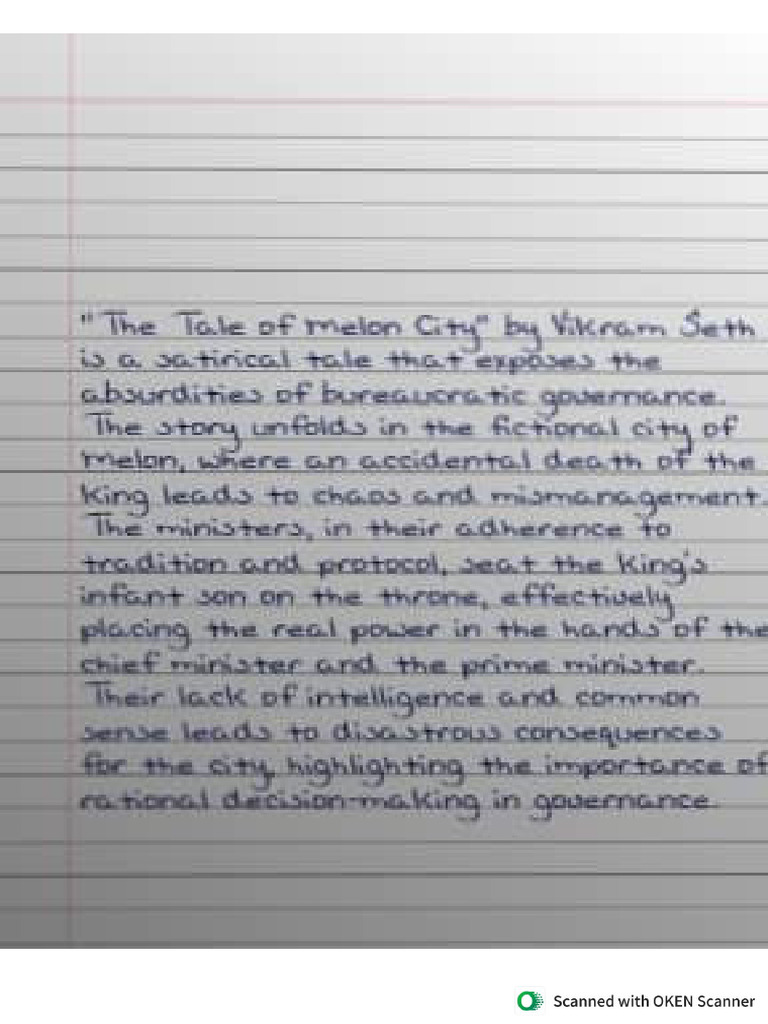 "The Tale of Melon City" by Vikram Seth
is a satirical tale that exposes the
absurdities of bureaucratic governance.
The story unfolds in the fictional city of
Melon, where an accidental death of the
King leads to chaos and mismanagement.
The ministers, in their adherence to
tradition and protocol, seat the King's
infant son on the throne, effectively
placing the real power in the hands of the
chief minister and the prime minister.
Their lack of intelligence and common
sense leads to disastrous consequences
for the city, highlighting the importance of
rational decision-making in governance.
Scanned with OKEN Scanner